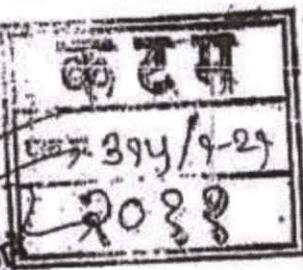 क ट म
३१५/१-२१
२०११